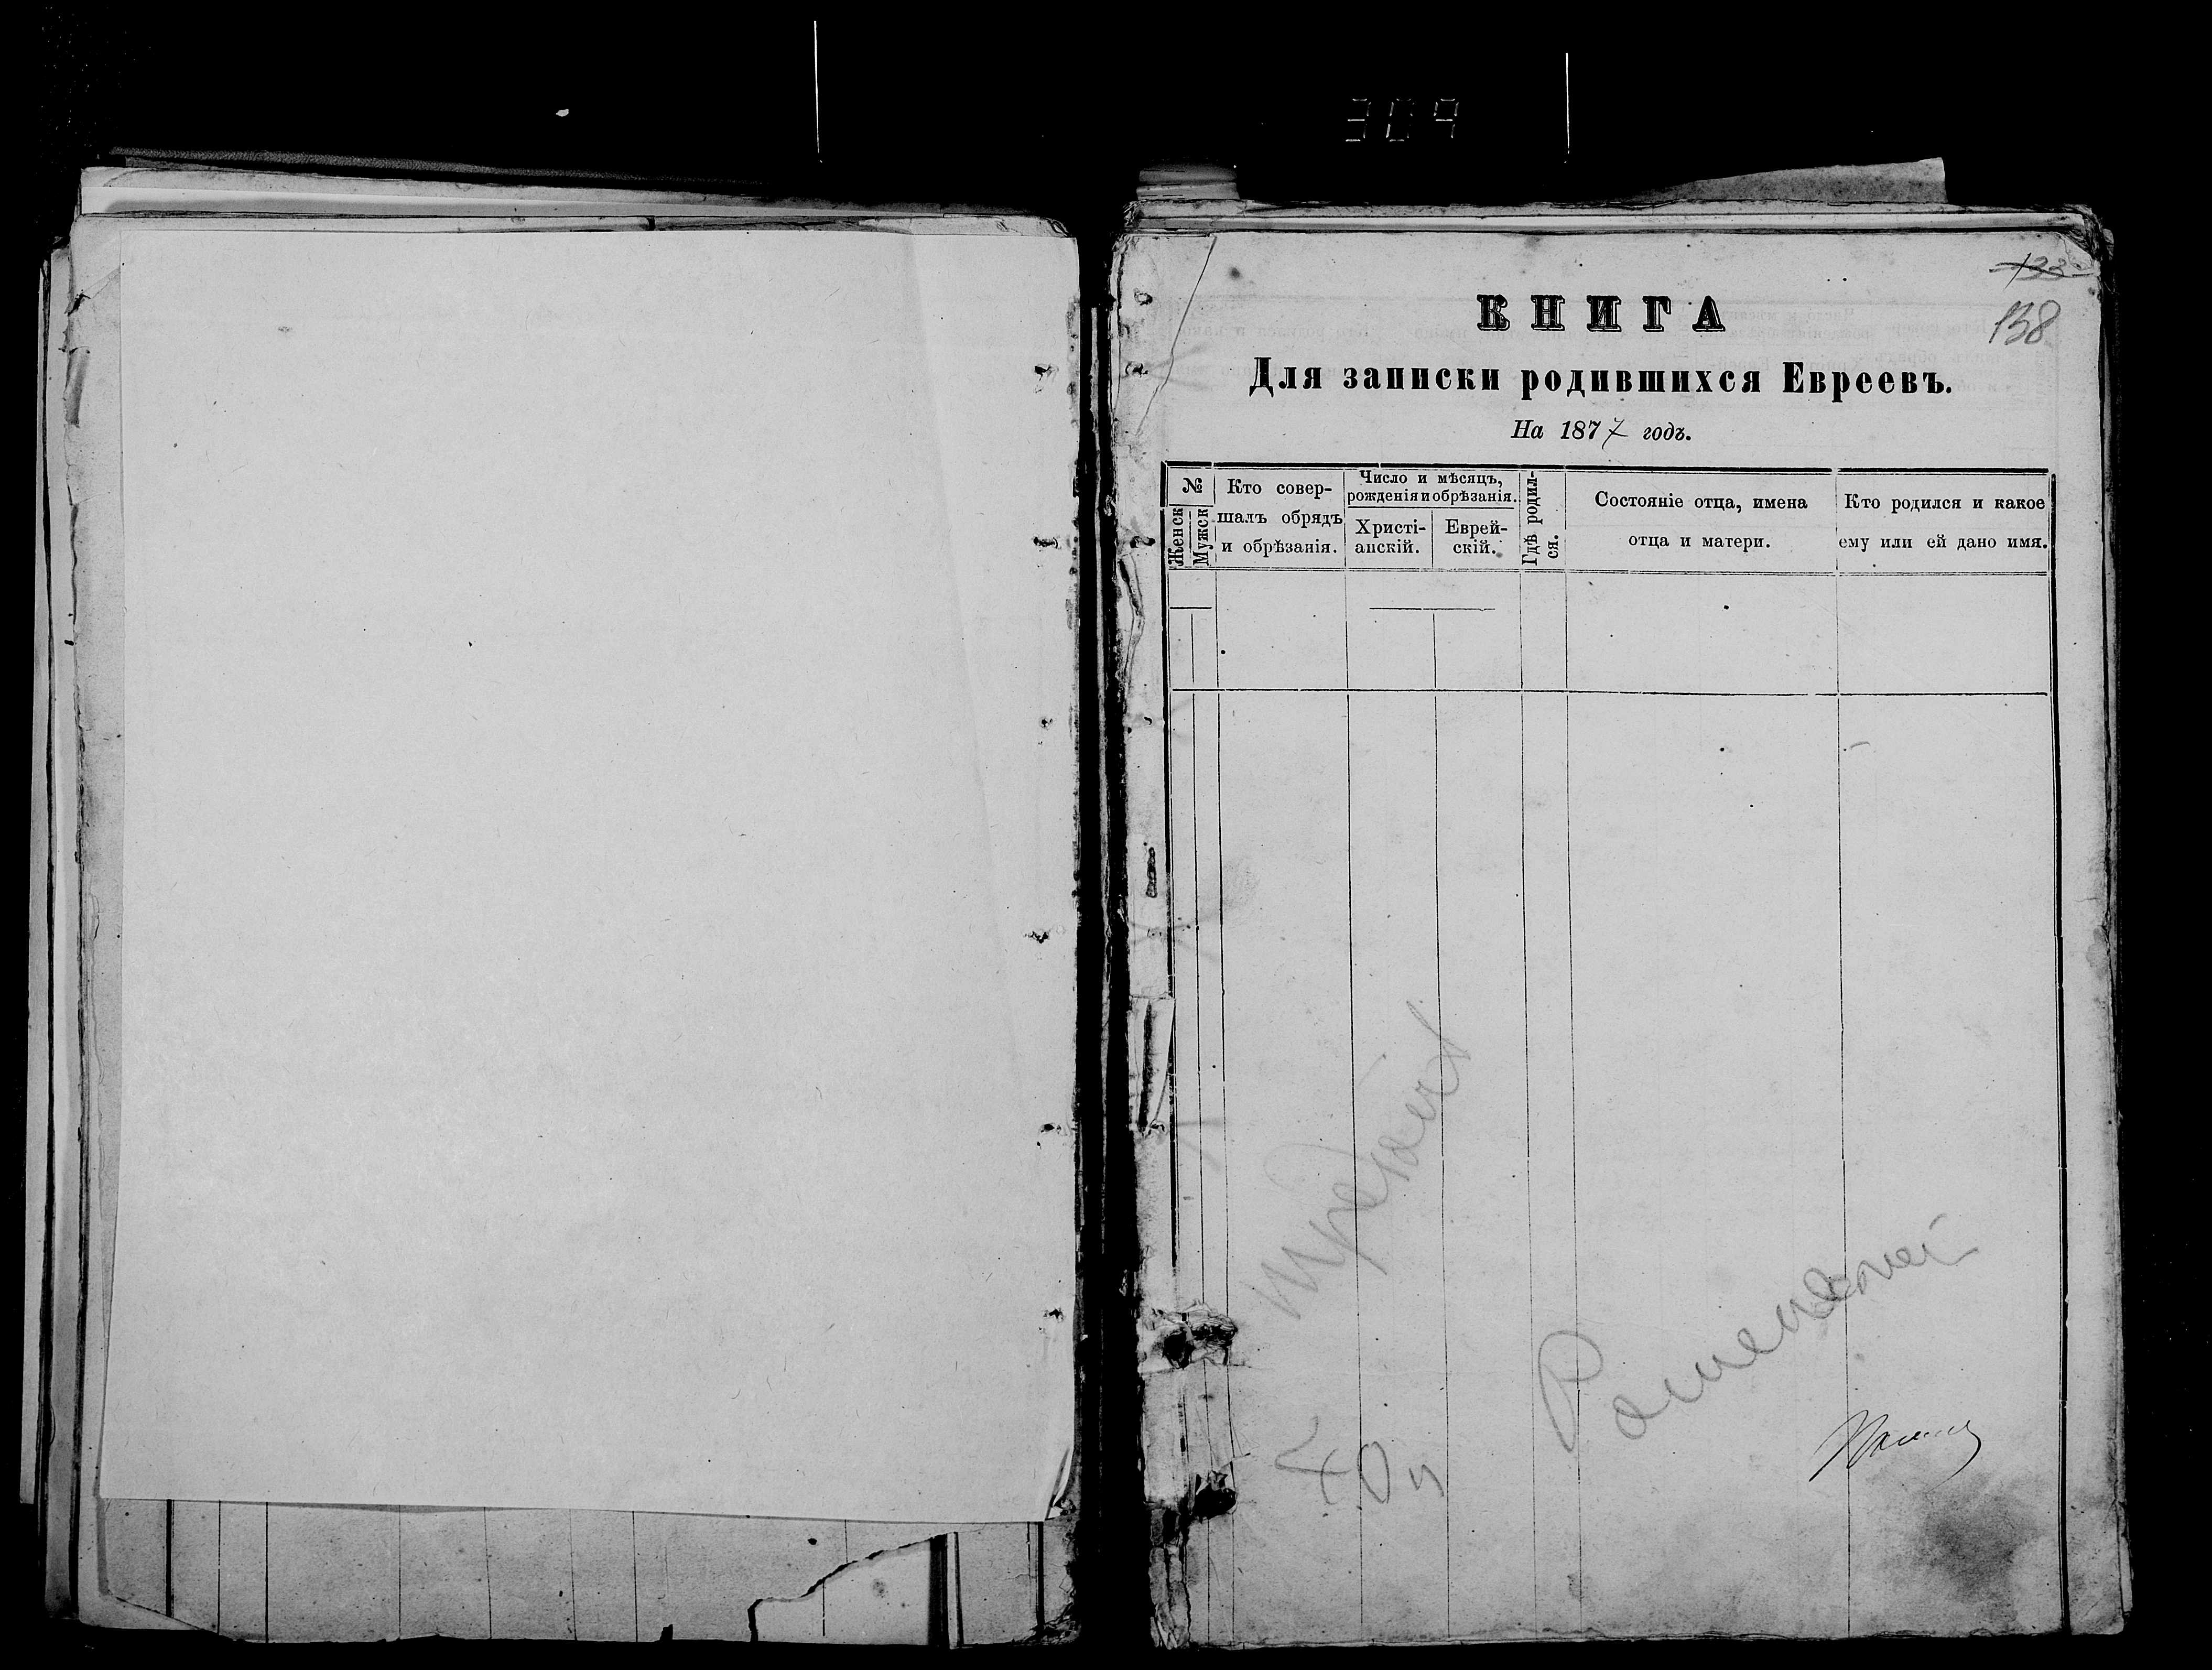 309
133
138
КНИГА
Для записки родившихся Евреевъ.
На 1877 годъ.
№
Женск
Мужск
Кто совер-
шалъ обрядъ
и обрѣзанія.
Число и мѣсяцъ,
рожденія и обрѣзанія.
Христі-
анскій.
Еврей-
скій.
Гдѣ родил-
ся.
Состояніе отца, имена
отца и матери.
Кто родился и какое
ему или ей дано имя.